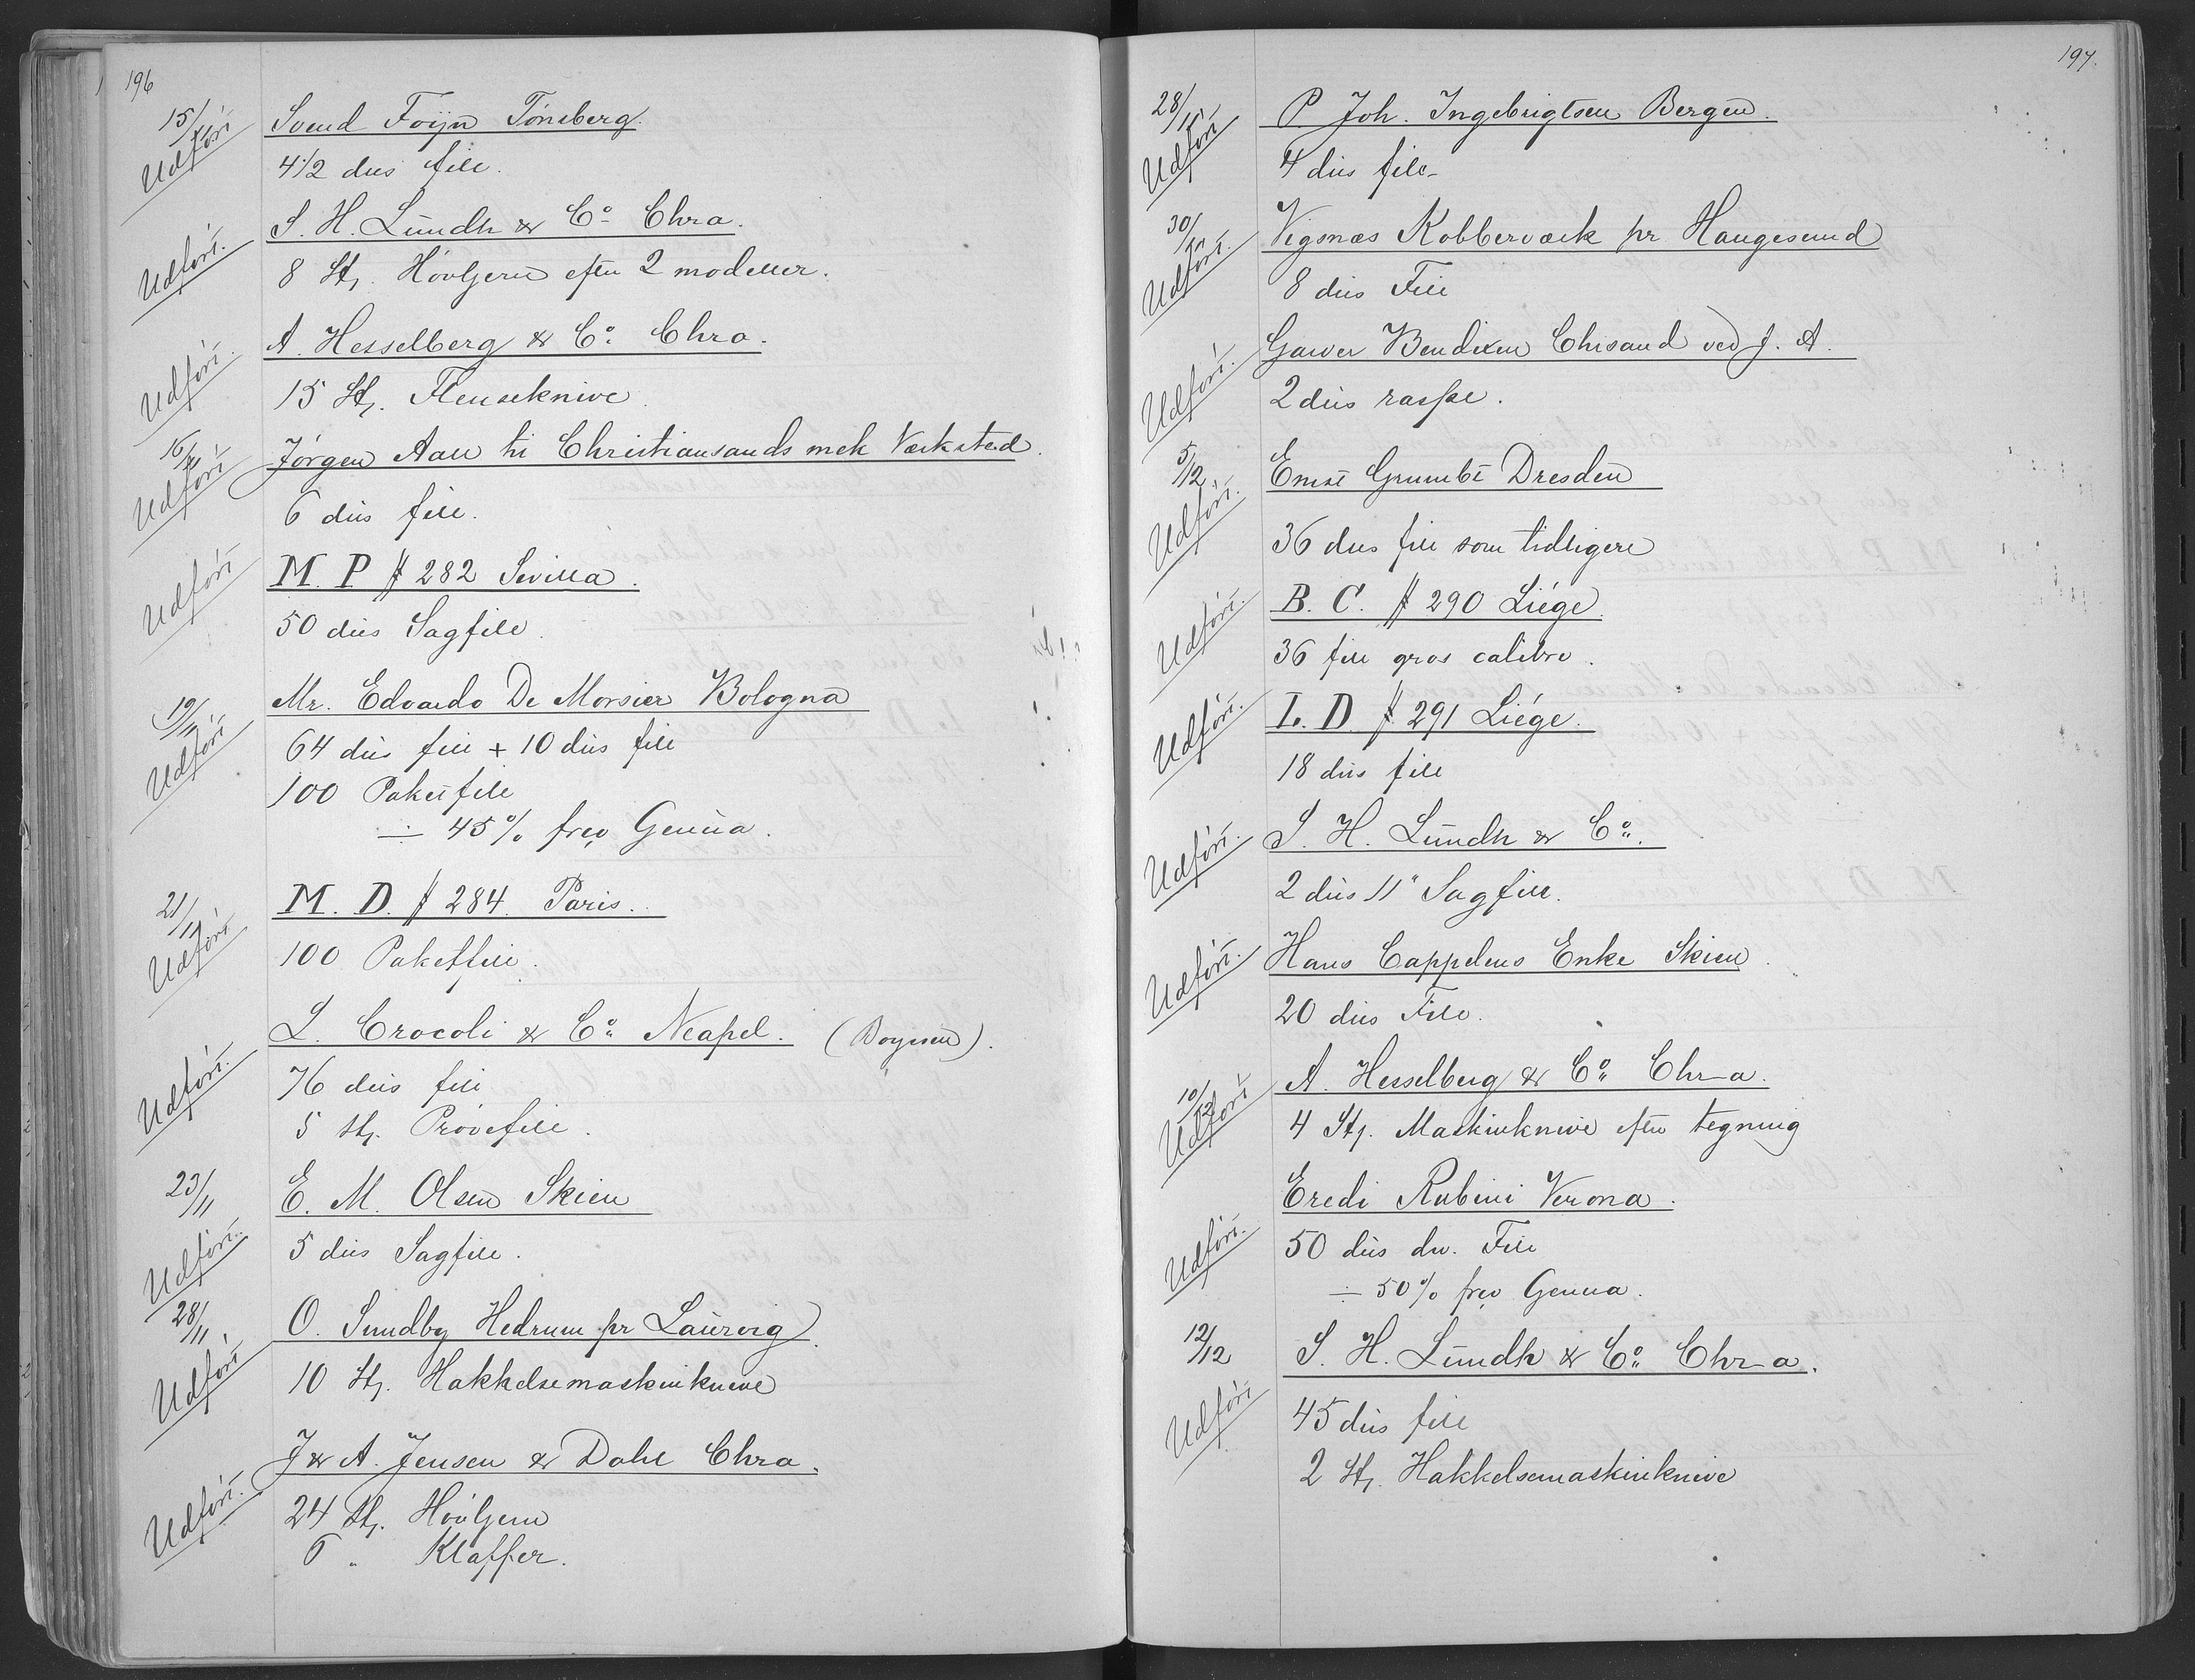 196
15/11 Udført Svend Foÿn Tönsberg.
4 1/2 dus file.
Udført. S. H. Lundh & Co Chra.
8 St. Høvljern efter 2 modeller.
Udført. A. Hesselberg & Co Chra.
15 St. Flenseknive
16/11 Udført Jørgen Aall til Christiansands mek Værksted.
6 dus file.
Udført M. P # 282 Sevilla.
50 dus Sagfile.
19/11 Udført Mr. Edoardo De Morsier Bologna
64 dus file + 10 dus file
100 Paketfile
÷ 45% frco Genua.
21/11 Udført M. D. # 284 Paris.
100 Paketfile.
Udført. L. Crocoli & Co Neapel. (Boysen).
76 dus file
5 St. Prøvefile.
23/11 Udført. E. M. Olsen Skien
5 dus Sagfile.
28/11 Udført O. Sundby Hedrum pr Laurvig.
10 St. Hakkelsemaskinknive
Udført. J & A. Jensen & Dahl Chra.
24 St. Høvljern
6 " Klaffer.
197.
28/11 Udført P. Joh. Ingebrigtsen Bergen.
4 dus file
30/11 Udført. Vigsnæs Kobberværk pr Haugesund
8 dus File
Udført. Bendixen Chrsand ved J. A.
2 dus raspe.
5/12 Udført. Ernst Grumbt Dresden
36 dus file som tidligere
Udført. B. C. # 290 Liége.
36 file gros calibre.
Udført. L. D. # 291 Liége.
18 dus file
Udført. S. H. Lundh & Co.
2 dus 11" Sagfile.
Udført. Hans Cappelens Enke Skien.
20 dus File.
10/12 Udført A. Hesselberg & Co Chr-a.
4 St. Maskinknive efter tegning
Udført. Eredi Rubini Verona.
50 dus div. File
÷ 50% frco Genua.
12/12 S. H. Lundh & Co Chr-a.
Udført 45 dus file
2 St. Hakkelsemaskinknive